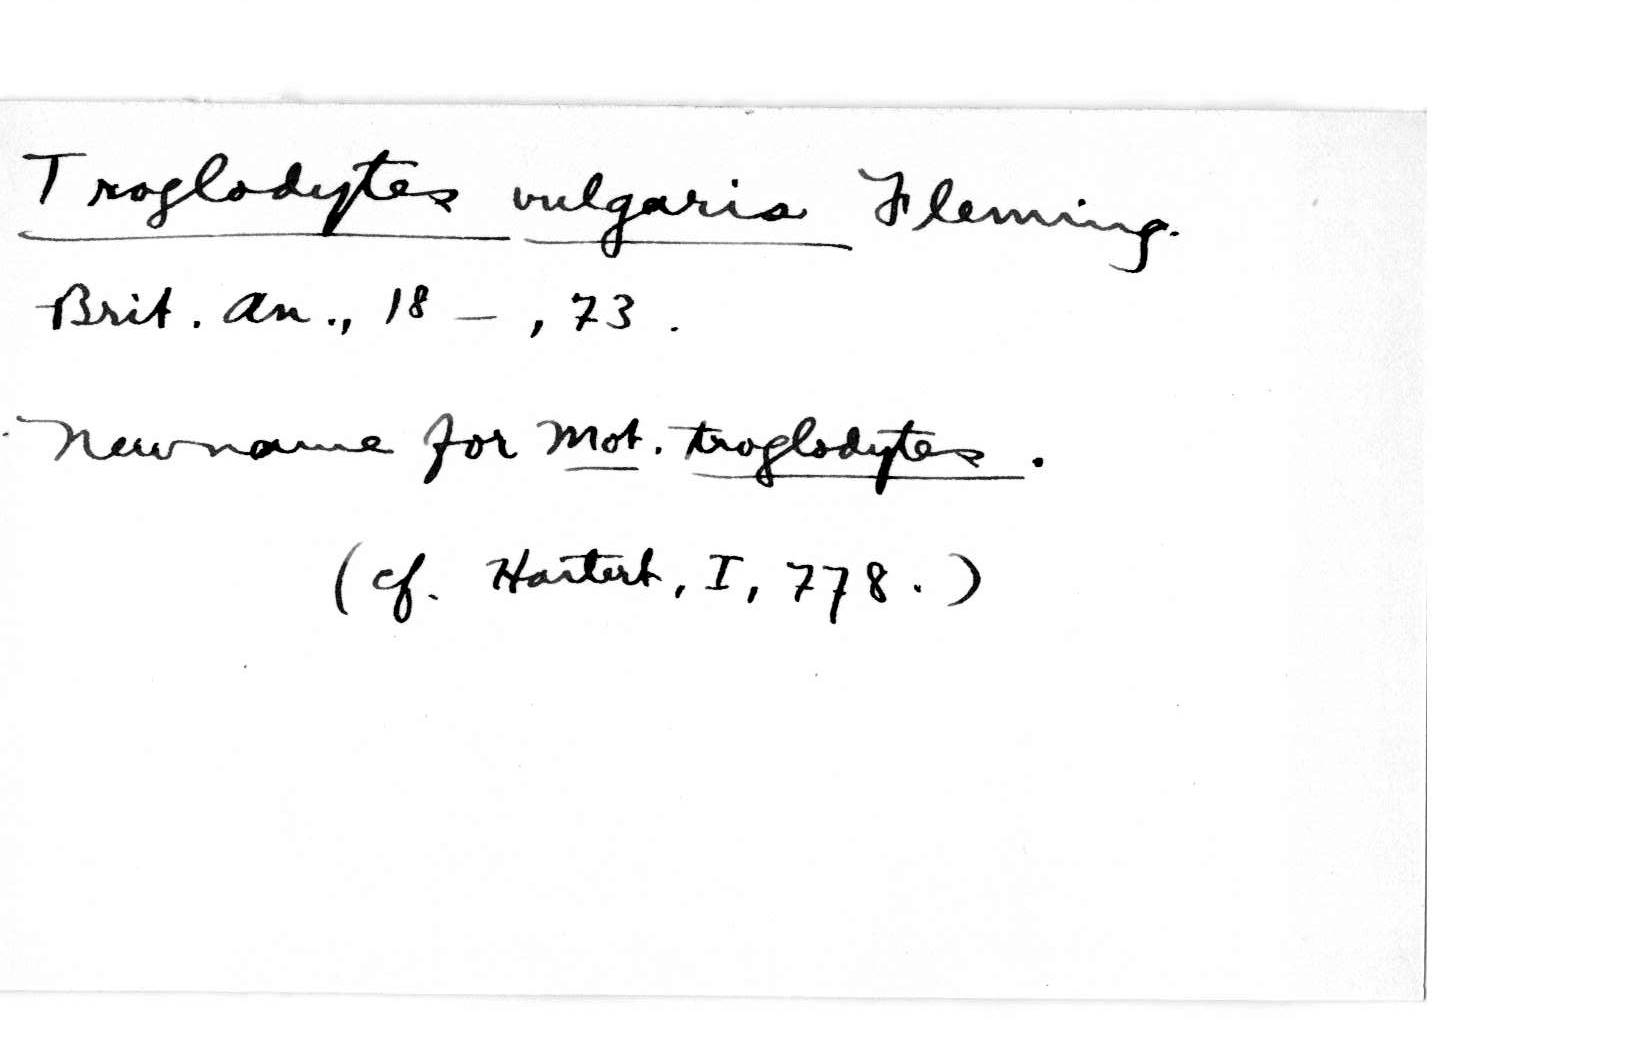 Troglodytes vulgaris Fleming.
Brit. An., 18 – , 73.
New name for Mot. troglodytes.
(cf. Hartert, I, 778.)